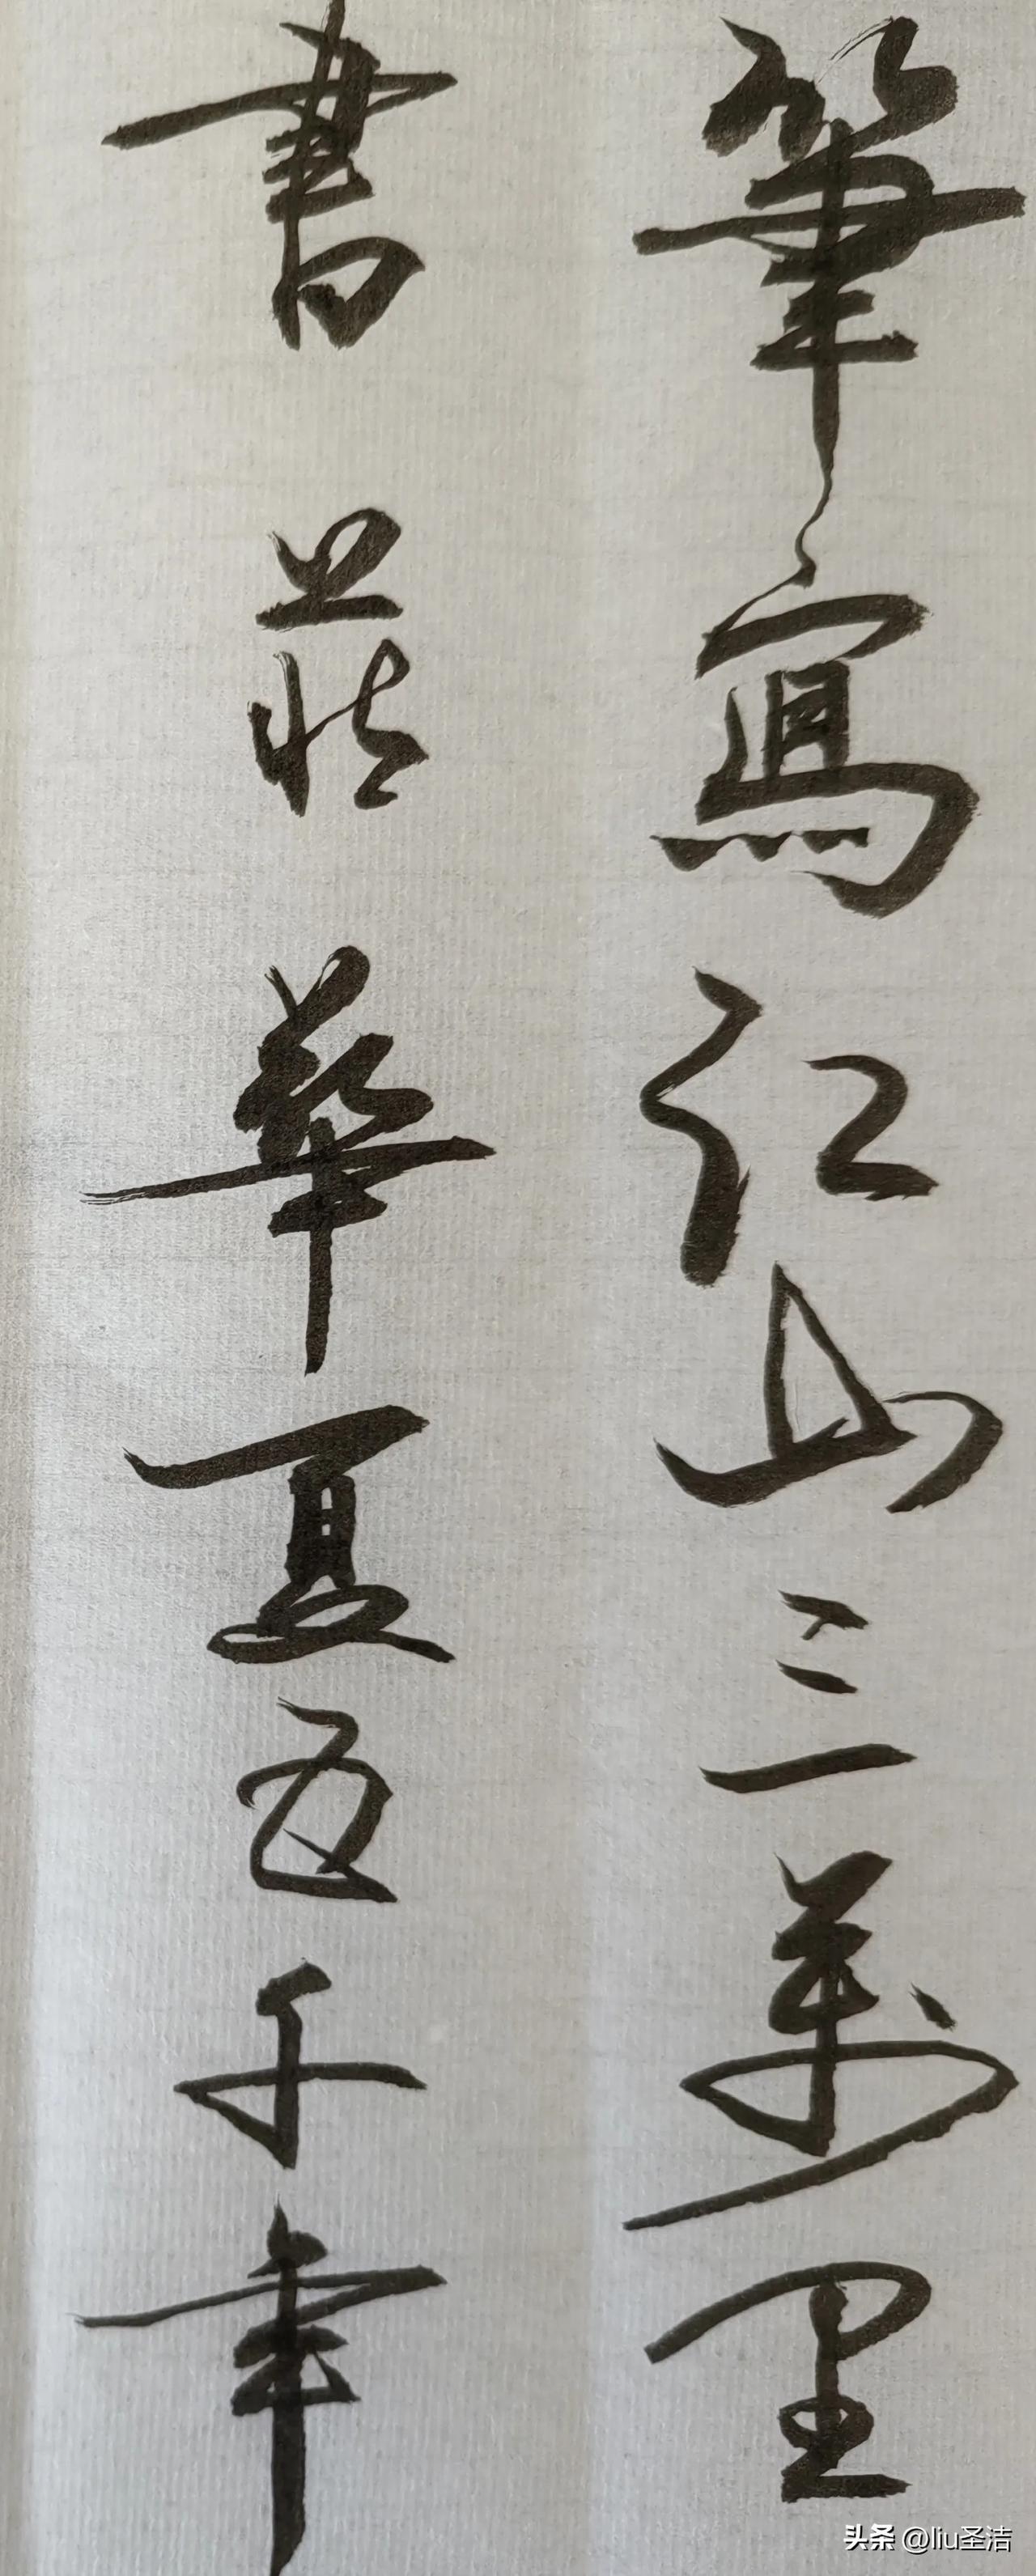 筆寫江山三萬里
書莊華夏五千年
头条 @liu圣洁